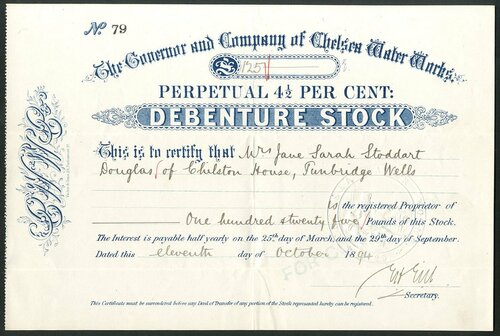 No 79
The Governor and Company of Chelsea Water Works.
£ 125
PERPETUAL 4½ PER CENT:
DEBENTURE STOCK
This is to certify that Mrs Jane Sarah Stoddart
Douglas of Chelston House, Tunbridge Wells
is the registered Proprietor of
One hundred & twenty five Pounds of this Stock.
The Interest is payable half yearly on the 25th day of March, and the 29th day of September.
Dated this eleventh day of October 1894
Secretary.
This Certificate must be surrendered before any Deed of Transfer of any portion of the Stock represented hereby can be registered.